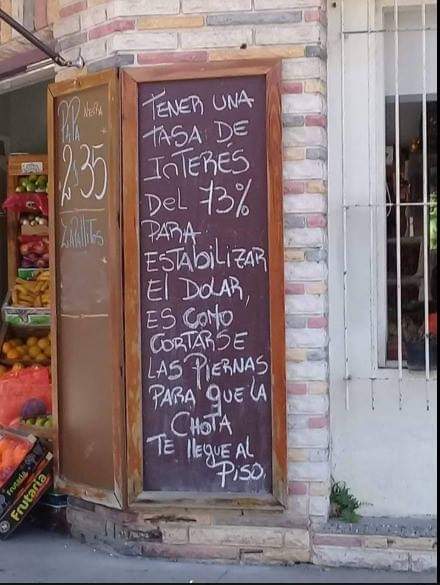 PAPA NEGRA
2 x 35
ZAPALLITOS
TENER UNA
TASA DE
InTERÉS
DEL 73%
PARA
ESTABILIZAR
El DOLAR,
ES COMO
CORTARSE
LAS PIERNAS
PARA QUE LA
CHOTA
TE llegue AL
PISO.
Frutaria
Frutaria